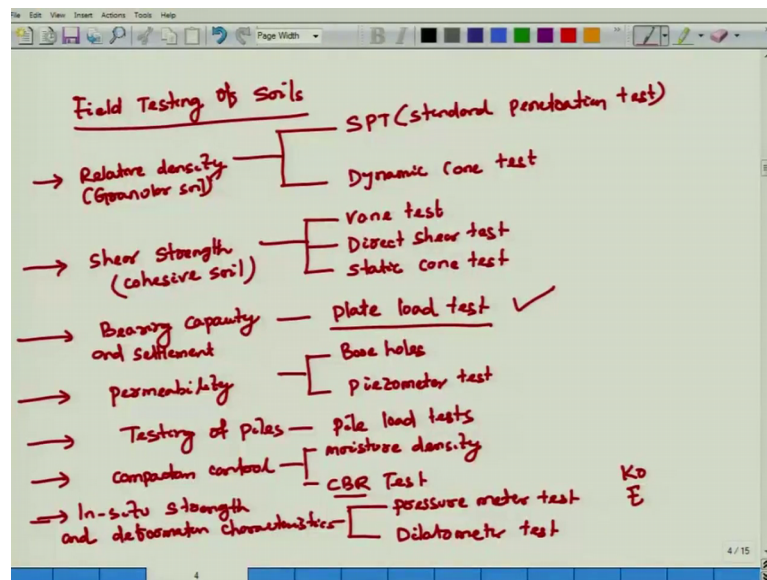 File Edit View Insert Actions Tools Help
Page Width
B I
Field Testing of Soils
SPT (standard penetration test)
→ Relative density
(Granular soil)
Dynamic Cone test
Vane test
→ Shear Strength
(cohesive soil)
Direct shear test
Static cone test
→ Bearing capacity
and settlement
Plate load test ✓
Bore holes
→ Permeability
Piezometer test
→ Testing of piles — Pile load tests
→ Compaction control
moisture density
CBR Test
K0
E
→ In-situ strength
and deformation characteristics
pressure meter test
Dilatometer test
4 / 15
4